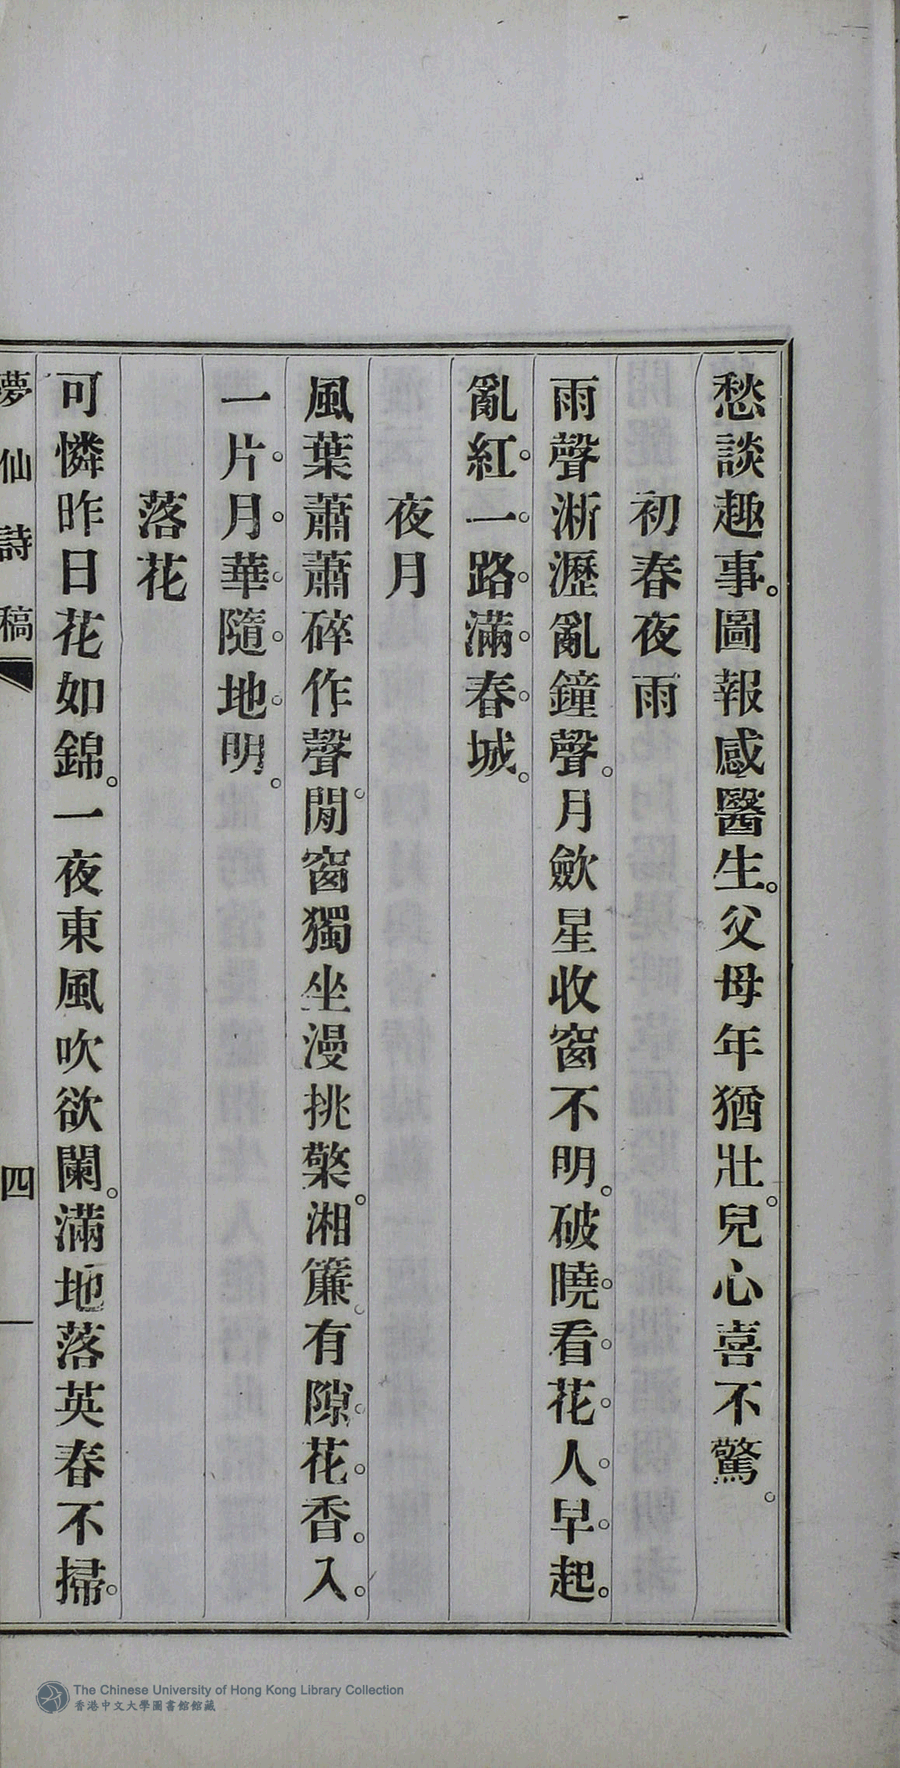 愁談趣事。圖報感醫生。父母年猶壯。兒心喜不驚。
初春夜雨
雨聲淅瀝亂鐘聲。月歛星收窗不明。破曉。看。花。人。早。起。
亂紅。一。路。滿。春。城。
夜月
風葉蕭蕭碎作聲。閒窗獨坐漫挑檠。湘簾。有隙。花。香。入。
一片。月。華。隨。地。明。
落花
可憐昨日花如錦。一夜東風吹欲闌。滿地落英春不掃。
夢仙詩稿
四
The Chinese University of Hong Kong Library Collection
香港中文大學圖書館館藏